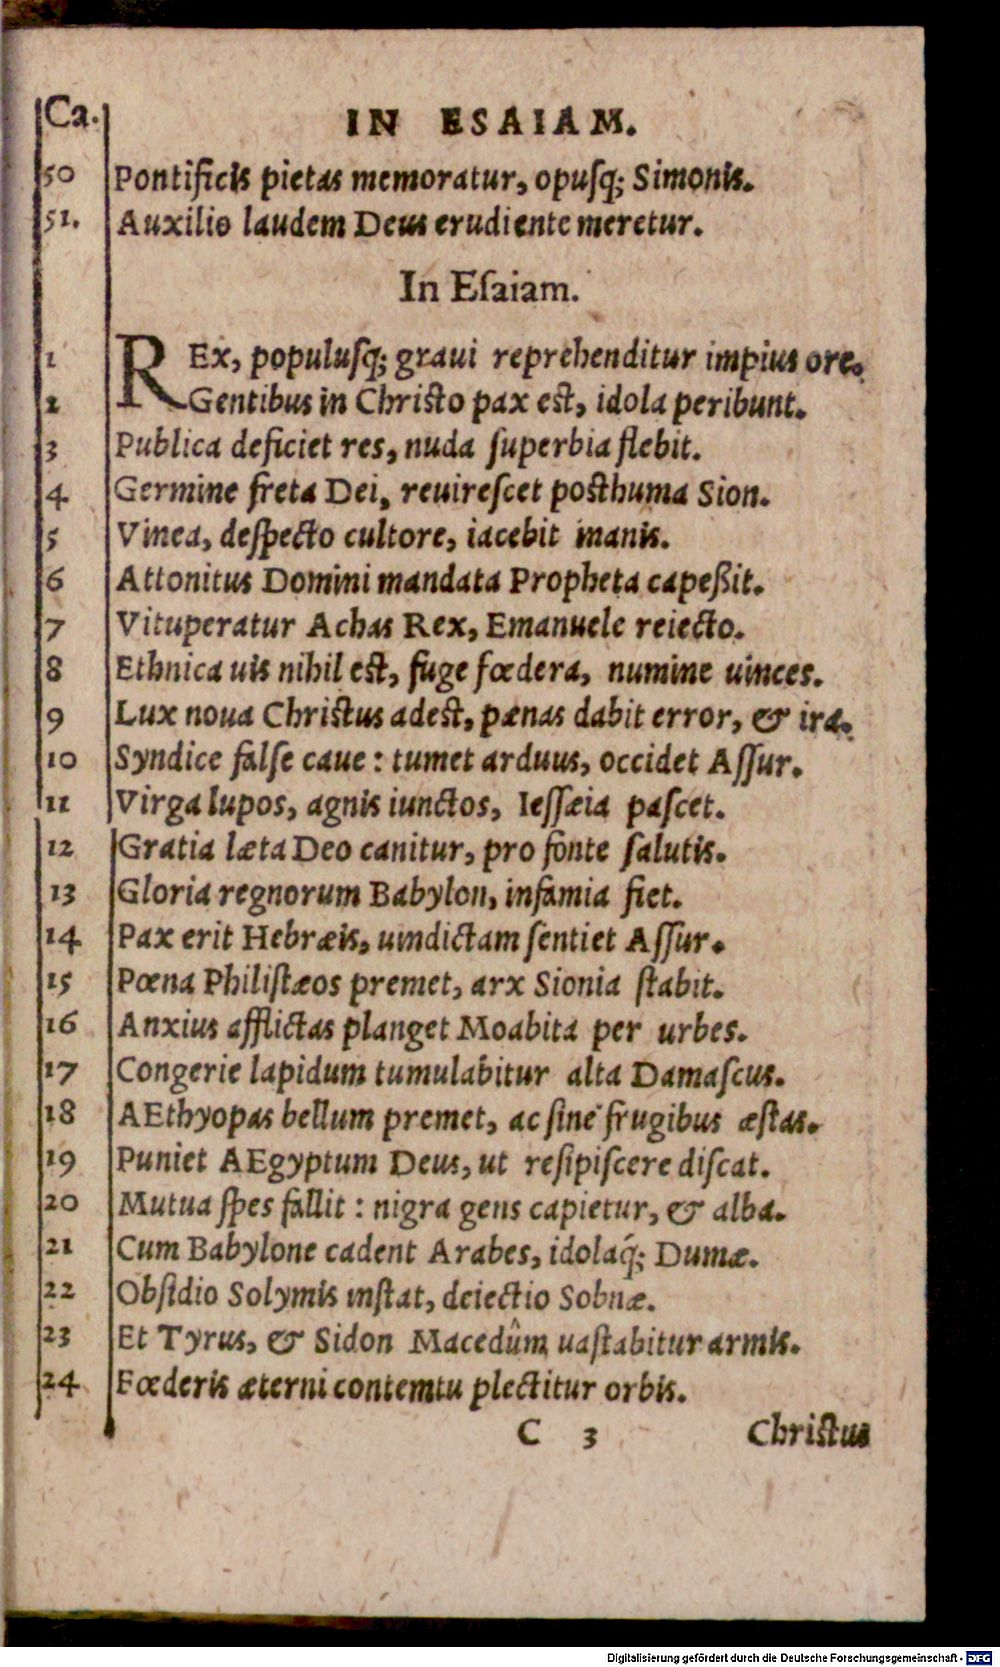 Ca. IN ESAIAM.
50 Pontificis pietas memoratur, opusq; Simonis.
51. Auxilio laudem Deus erudiente meretur.
In Eſaiam.
1 REx, populuſq; graui reprehenditur impius ore.
2 Gentibus in Christo pax est, idola peribunt.
3 Publica deficiet res, nuda ſuperbia flebit.
4 Germine freta Dei, reuireſcet posthuma Sion.
5 Vinea, deſpecto cultore, iacebit inanis.
6 Attonitus Domini mandata Propheta capeßit.
7 Vituperatur Achas Rex, Emanuele reiecto.
8 Ethnica uis nihil est, fuge fœdera, numine uinces.
9 Lux noua Christus adest, pænas dabit error, & ira.
10 Syndice falſe caue : tumet arduus, occidet Aſſur.
11 Virga lupos, agnis iunctos, Ieſſæia paſcet.
12 Gratia læta Deo canitur, pro fonte ſalutis.
13 Gloria regnorum Babylon, infamia fiet.
14 Pax erit Hebræis, uindictam ſentiet Aſſur.
15 Pœna Philiſtæos premet, arx Sionia ſtabit.
16 Anxius afflictas planget Moabita per urbes.
17 Congerie lapidum tumulabitur alta Damaſcus.
18 AEthyopas bellum premet, ac ſine frugibus æſtas.
19 Puniet AEgyptum Deus, ut reſipiſcere diſcat.
20 Mutua ſpes fallit : nigra gens capietur, & alba.
21 Cum Babylone cadent Arabes, idolaq́; Dumæ.
22 Obſidio Solymis inſtat, deiectio Sobnæ.
23 Et Tyrus, & Sidon Macedûm uaſtabitur armis.
24 Fœderis æterni contemtu plectitur orbis.
C 3 Christus
Digitalisierung gefördert durch die Deutsche Forschungsgemeinschaft - DFG